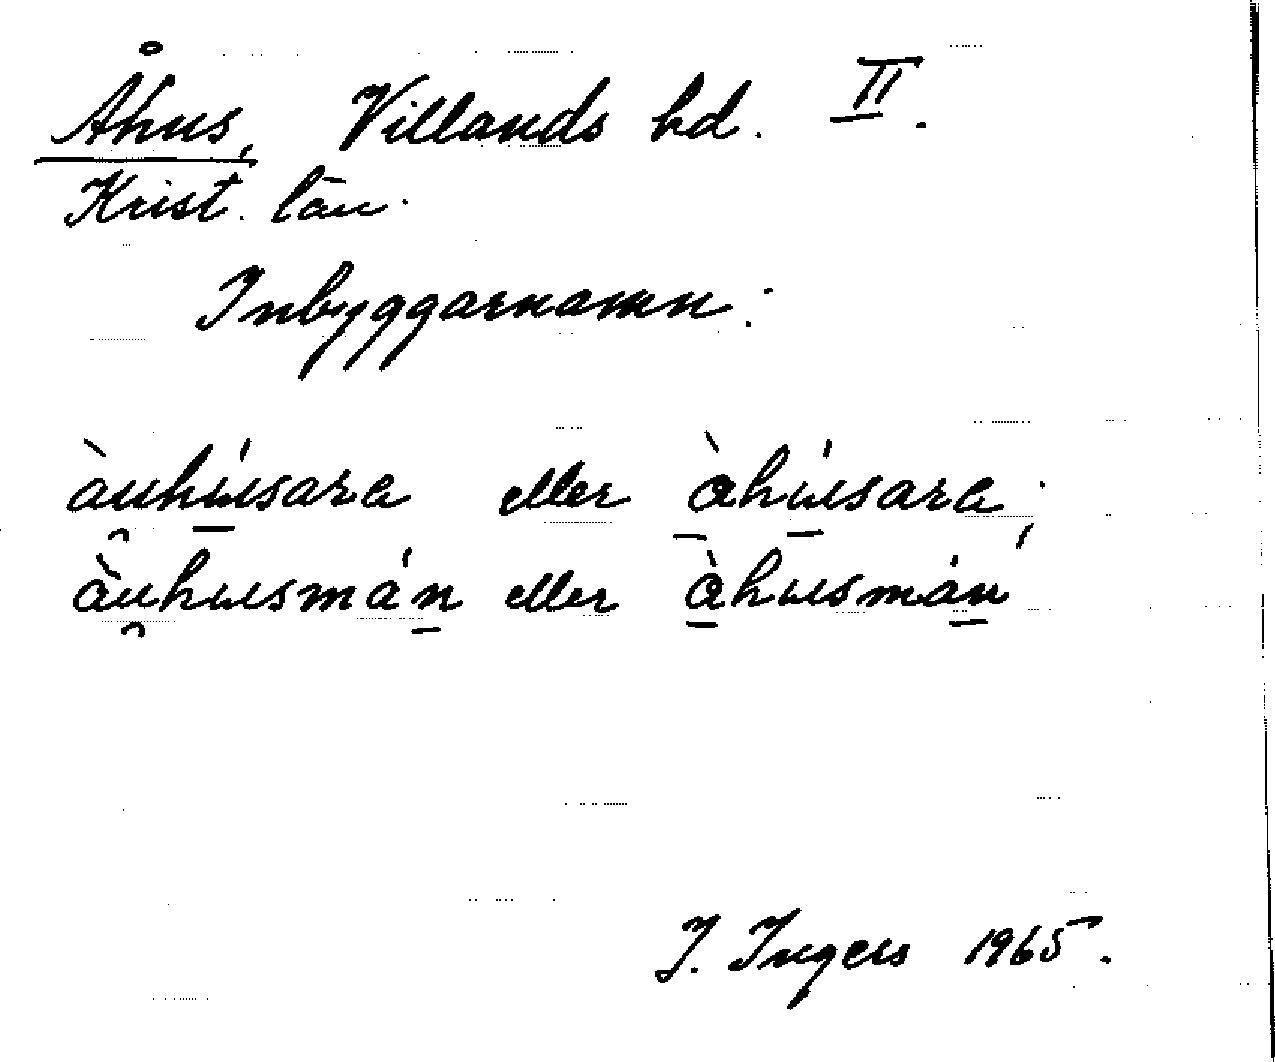 Åhus, Villands hd. II.
Krist. län.
Inbyggarnamn:
àu̯hú̠sara eller À̠hú̠sara;
àu̯husmán̠ eller à̠husmán̠
I. Ingers 1965.